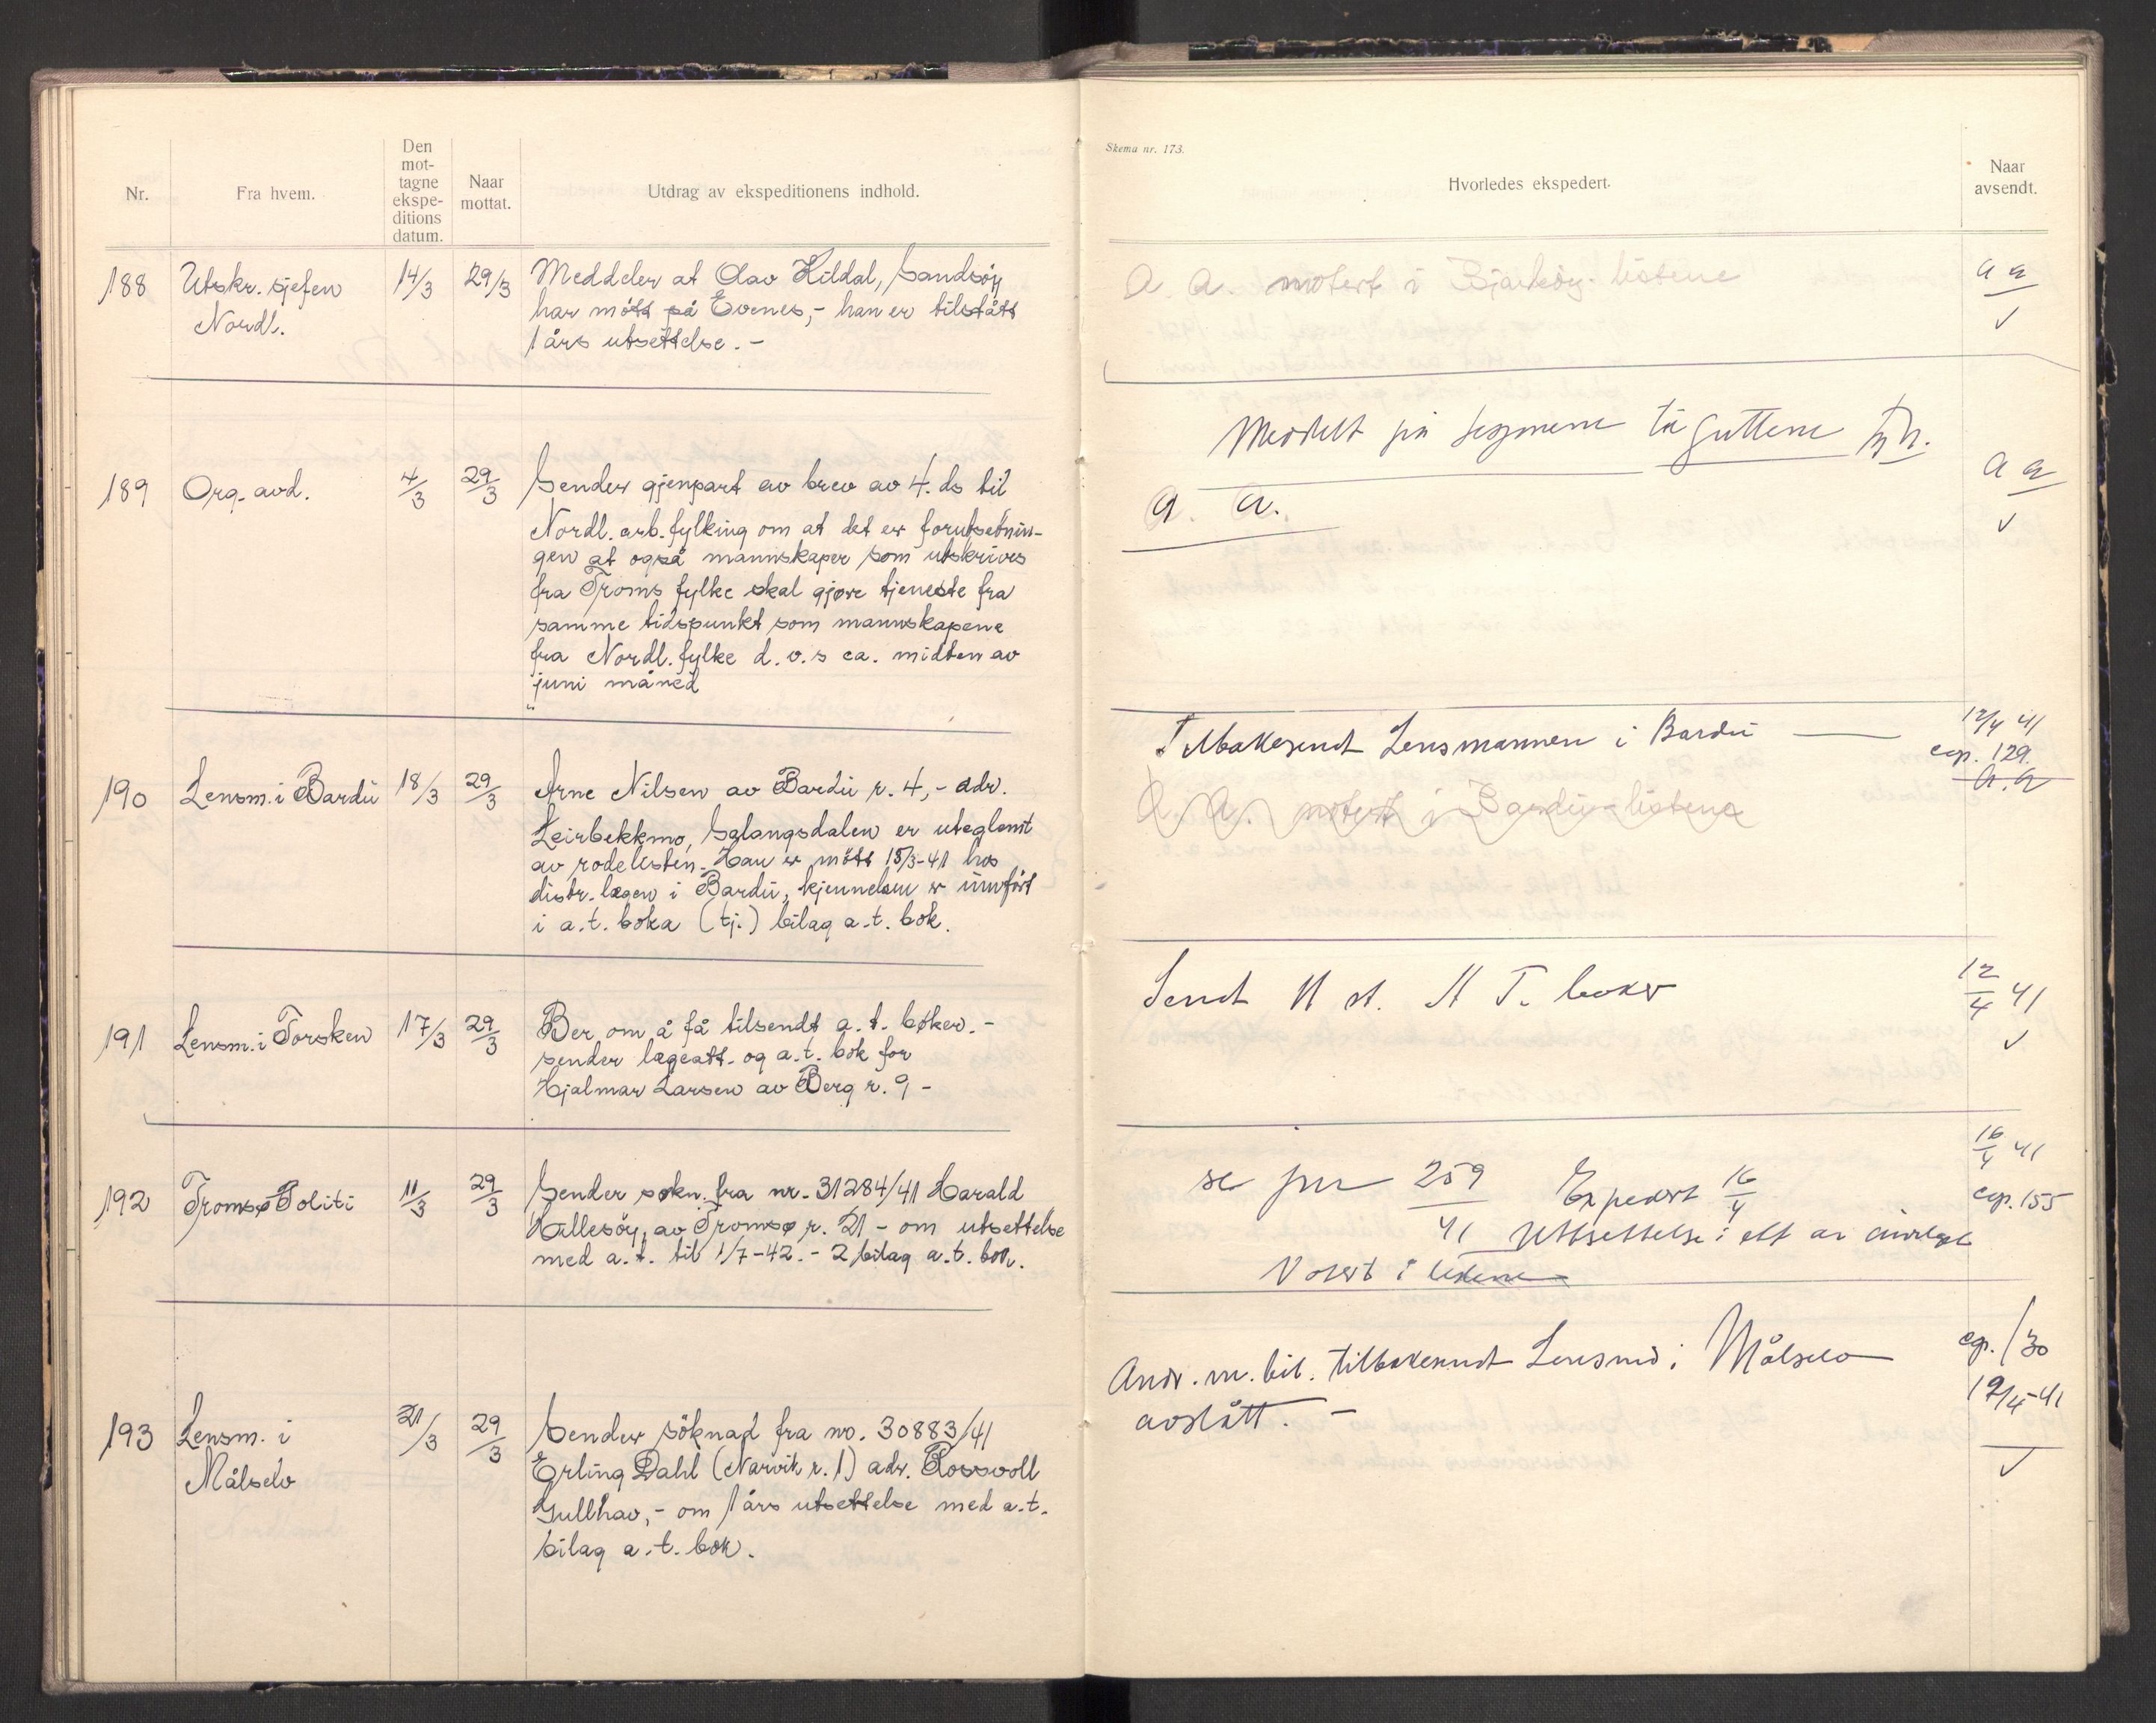 Nr.
Fra hvem.
Den
mot-
tagne
ekspe-
ditions
datum.
Naar
mottat.
Utdrag av ekspeditionens indhold.
188
Utskr. sjefen
Nordl.
14/3
29/3
Meddeler at Olav Kildal, Sandsöy
har mött på Evenes,- han er tilstått
1 års utsettelse. -
189
Org. avd.
4/3
29/3
Sender gjenpart av brev av 4. ds til
Nordl. arb. fylking om at det er forutsetnin-
gen at også mannskaper som utskrives
fra Troms fylke skal gjøre tjeneste fra
samme tidspunkt som mannskapene
fra Nordl. fylke d. v. s ca. midten av
juni måned
190
Lensm. i Bardu
18/3
29/3
Arne Nilsen av Bardu r. 4,- adr.
Leirbekkmo, Salangsdalen er uteglemt
av rodelisten. Han er mött 15/3-41 hos
distr. lægen i Bardu, kjennelsen er innfört
i a.t. boka (tj.) bilag a.t. bok.
191
Lensm. i Torsken
17/3
29/3
Ber om å få tilsendt a.t. bøker. -
sender lægeatt. og a.t. bok for
Hjalmar Larsen av Berg r. 9 -
192
Tromsø Politi
11/3
29/3
Sender søkn. fra nr. 31284/41 Harald
Hallesöy, av Tromsø r. 21 - om utsettelse
med a.t. til 1/7-42. - 2 bilag a.t. bok.
193
Lensm. i
Målselv
21/3
29/3
Sender söknad fra no. 30883/41
Erling Dahl (Narvik r. 1) adr. Rossvoll
Gullhav,- om 1 års utsettelse med a.t.
bilag a.t. bok.
Skema nr. 173.
Hvorledes ekspedert.
Naar
avsendt.
a. a. notert i Bjarköy-listene
a a
✓
Meddelt på
guttene
a. a.
a a
✓
Tilbakesendt Lensmannen i Bardu
12/4 41
cop. 129.
a.a
a. a. notert i Bardu-listene
Sendt 11 st. A T. boker
12/4 41
✓
se jnr 259/41 Expedert 16/4
16/4 41
cop. 155
Utsettelse i ett år
Notert i listene
Andr. m. bil. tilbakesendt Lensmd i Målselv
avslått. -
cop. 130
12/4-41
✓